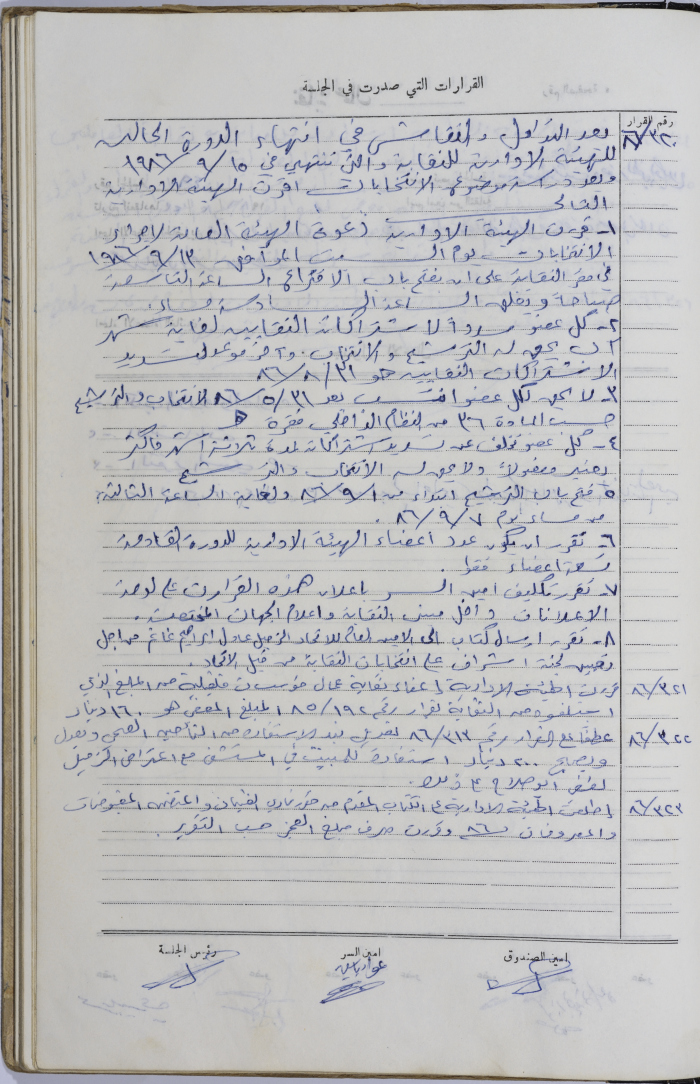 القرارات التي صدرت في الجلسة
رقم القرار
٨٦/٣٢٠
بعد التداول والنقاش في انتهاء الدورة الحالية
للهيئة الادارية للنقابة والتي تنتهي في ١٥/٩/١٩٨٦
وبعد دراسة موضوع الانتخابات اقرت الهيئة الادارية
التالي
١- قررت الهيئة الادارية دعوة الهيئة العامة لاجراء
الانتخابات يوم السبت الموافق ١٣/٩/١٩٨٦
في مقر النقابة على ان يفتح باب الاقتراع الساعة التاسعة
صباحاً ويغلق الساعة السادسة مساء.
٢- كل عضو مسدداً لاشتراكاته النقابية لغاية شهر
آب يحق له الترشيح والانتخاب. وآخر موعد لتسديد
الاشتراكات النقابية هو ٣١/٨/٨٦
٣- لا يحق لكل عضو انتسب بعد ٣١/٥/٨٦ الانتخاب والترشيح
حسب المادة ٣٦ من النظام الداخلي فقرة هـ
٤- كل عضو تخلف عن تسديد اشتراكاته لمدة ثلاثة اشهر فأكثر
يعتبر مفصولاً ولا يحق له الانتخاب والترشيح
٥- فتح باب الترشيح ابتداء من ١/٩/٨٦ ولغاية الساعة الثالثة
من مساء يوم ٧/٩/٨٦.
٦- تقرر ان يكون عدد اعضاء الهيئة الادارية للدورة القادمة
تسعة اعضاء فقط.
٧- تقرر تكليف امين السر باعلان هذه القرارت على لوحة
الاعلانات داخل مبنى النقابة واعلام الجهات المختصة.
٨- تقرر ارسال كتاب الى الامين العام للاتحاد الزميل عادل ابراهيم غانم من اجل
تعيين لجنة اشراف على انتخابات النقابة من قبل الاتحاد.
٨٦/٣٢١
قررت الهيئة الادارية اعفاء نقابة عمال مؤسسات قلقيلية من المبلغ الذي
استلفوه من النقابة لقرار رقم ٨٥/١٩٢ المبلغ المعفى هو ١٦٠ دينار
٨٦/٣٢٢
عطفاً على القرار رقم ٨٦/٣١٣ تعديل بند الاستفادة من التأمين الصحي وتعدل
ويصبح ٢٠٠ دينار استفادة للمبيت في المستشفى مع اعتراض الزميل
على ذلك.
٨٦/٣٢٣
اطلعت الهيئة الادارية على الكتاب المقدم من واعتمد المقبوضات
والمصروفات ٨٦ وقررت صرف مبلغ العجز حسب التقرير.
امين الصندوق
امين السر
رئيس الجلسة